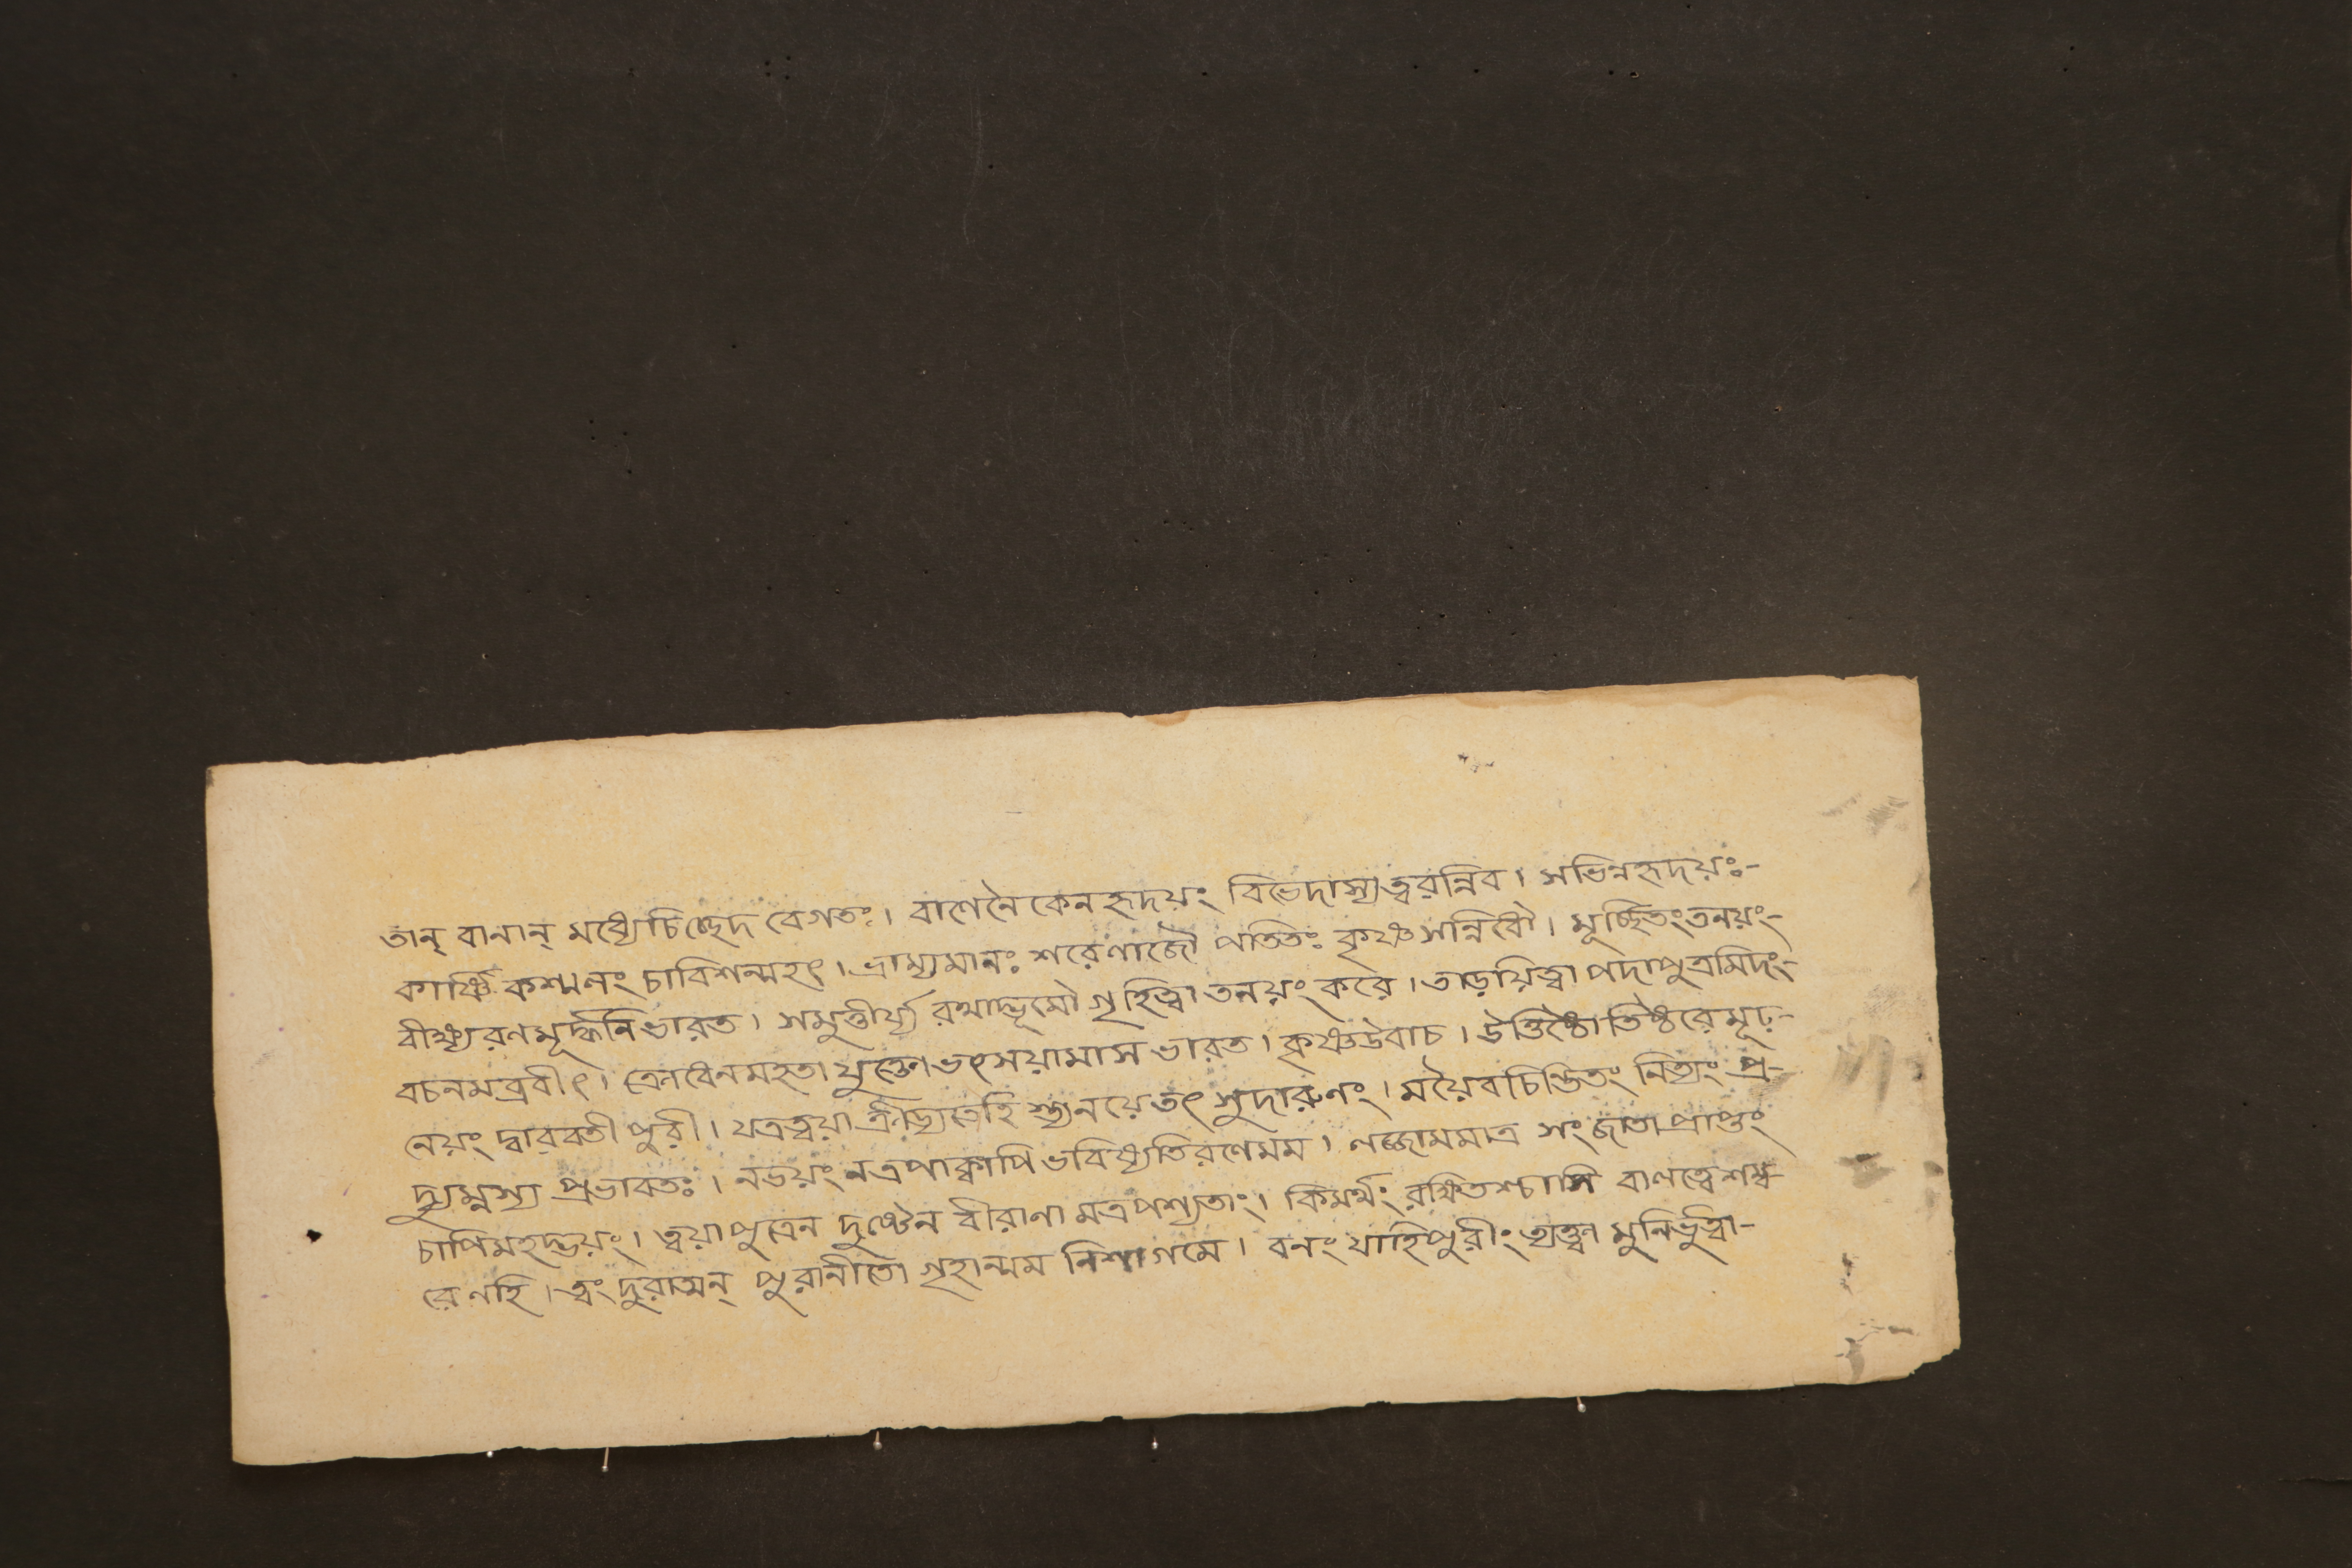 তান্ বানান্ মধ্যেচিচ্ছেদ বেগতঃ। বাণেনৈকেনহৃদয়ং বিভেদাস্যত্বরন্নিব। সভিন্নহৃদয়ঃ-
কার্ষ্ণি কশ্মলং চাবিশন্মহৎ। ভ্রাম্যমানঃ শরেণাজৌ পতিতঃ কৃষ্ণসন্নিধৌ। মূর্চ্ছিতংতনয়ং-
বীক্ষ্যরণমূর্দ্ধনিভারত। সমুত্তীর্য্য রথাদ্ভূমৌ গৃহিত্বা তনয়ং করে। তাড়য়িত্বা পদাপুত্রমিদং-
বচনমব্রবীৎ। ক্রোধেনমহতা যুক্তো ভৎসয়ামাস ভারত। কৃষ্ণউবাচ। উত্তিষ্ঠো তিষ্ঠরেমূঢ়-
নেয়ং দ্বারবতী পুরী। যত্রত্বয়া ক্রীড্যতেহি শ্যনয়েতৎ সুদারুণং। ময়ৈবচিন্তিতং নিত্যং প্র-
দ্যুম্নস্য প্রভাবতঃ। নভয়ং নত্রপাক্বাপি ভবিষ্যতিরণেমম। লজ্জামমাত্র সংজাতা প্রাপ্তং
চাপিমহদ্ভয়ং। ত্বয়াপুত্রেন দুষ্টেন বীরাণা মত্রপশ্যতাং। কিমর্থং রক্ষিতশ্চাসি বালত্বেশম্ব-
রেণহি। ত্বং দুরাত্মন্ পুরানীতো গৃহান্মম নিশাগমে। বনং যাহিপুরীং ত্যক্ত্বা মুনির্ভুত্বা-